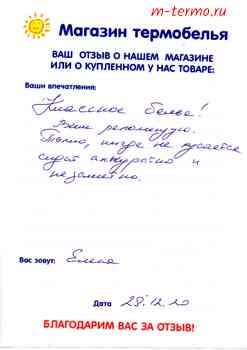 m-termo.ru
Магазин термобелья
ВАШ ОТЗЫВ О НАШЕМ МАГАЗИНЕ
ИЛИ О КУПЛЕННОМ У НАС ТОВАРЕ:
Ваши впечатления:
Классное белье!
Всем рекомендую.
Тепло, нигде не кусается
сидит аккуратно и
незаметно.
Вас зовут: Елена
Дата 28.12.20
БЛАГОДАРИМ ВАС ЗА ОТЗЫВ!